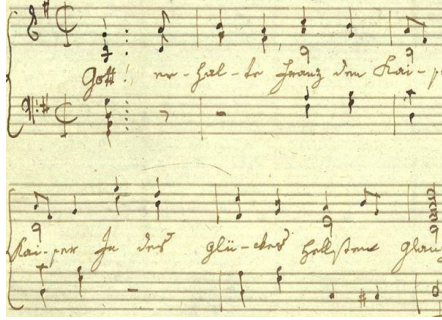 Gott! er-hal-te Franz den Kai-
Kai-ser In des Glü-ckes hellstem Glanz